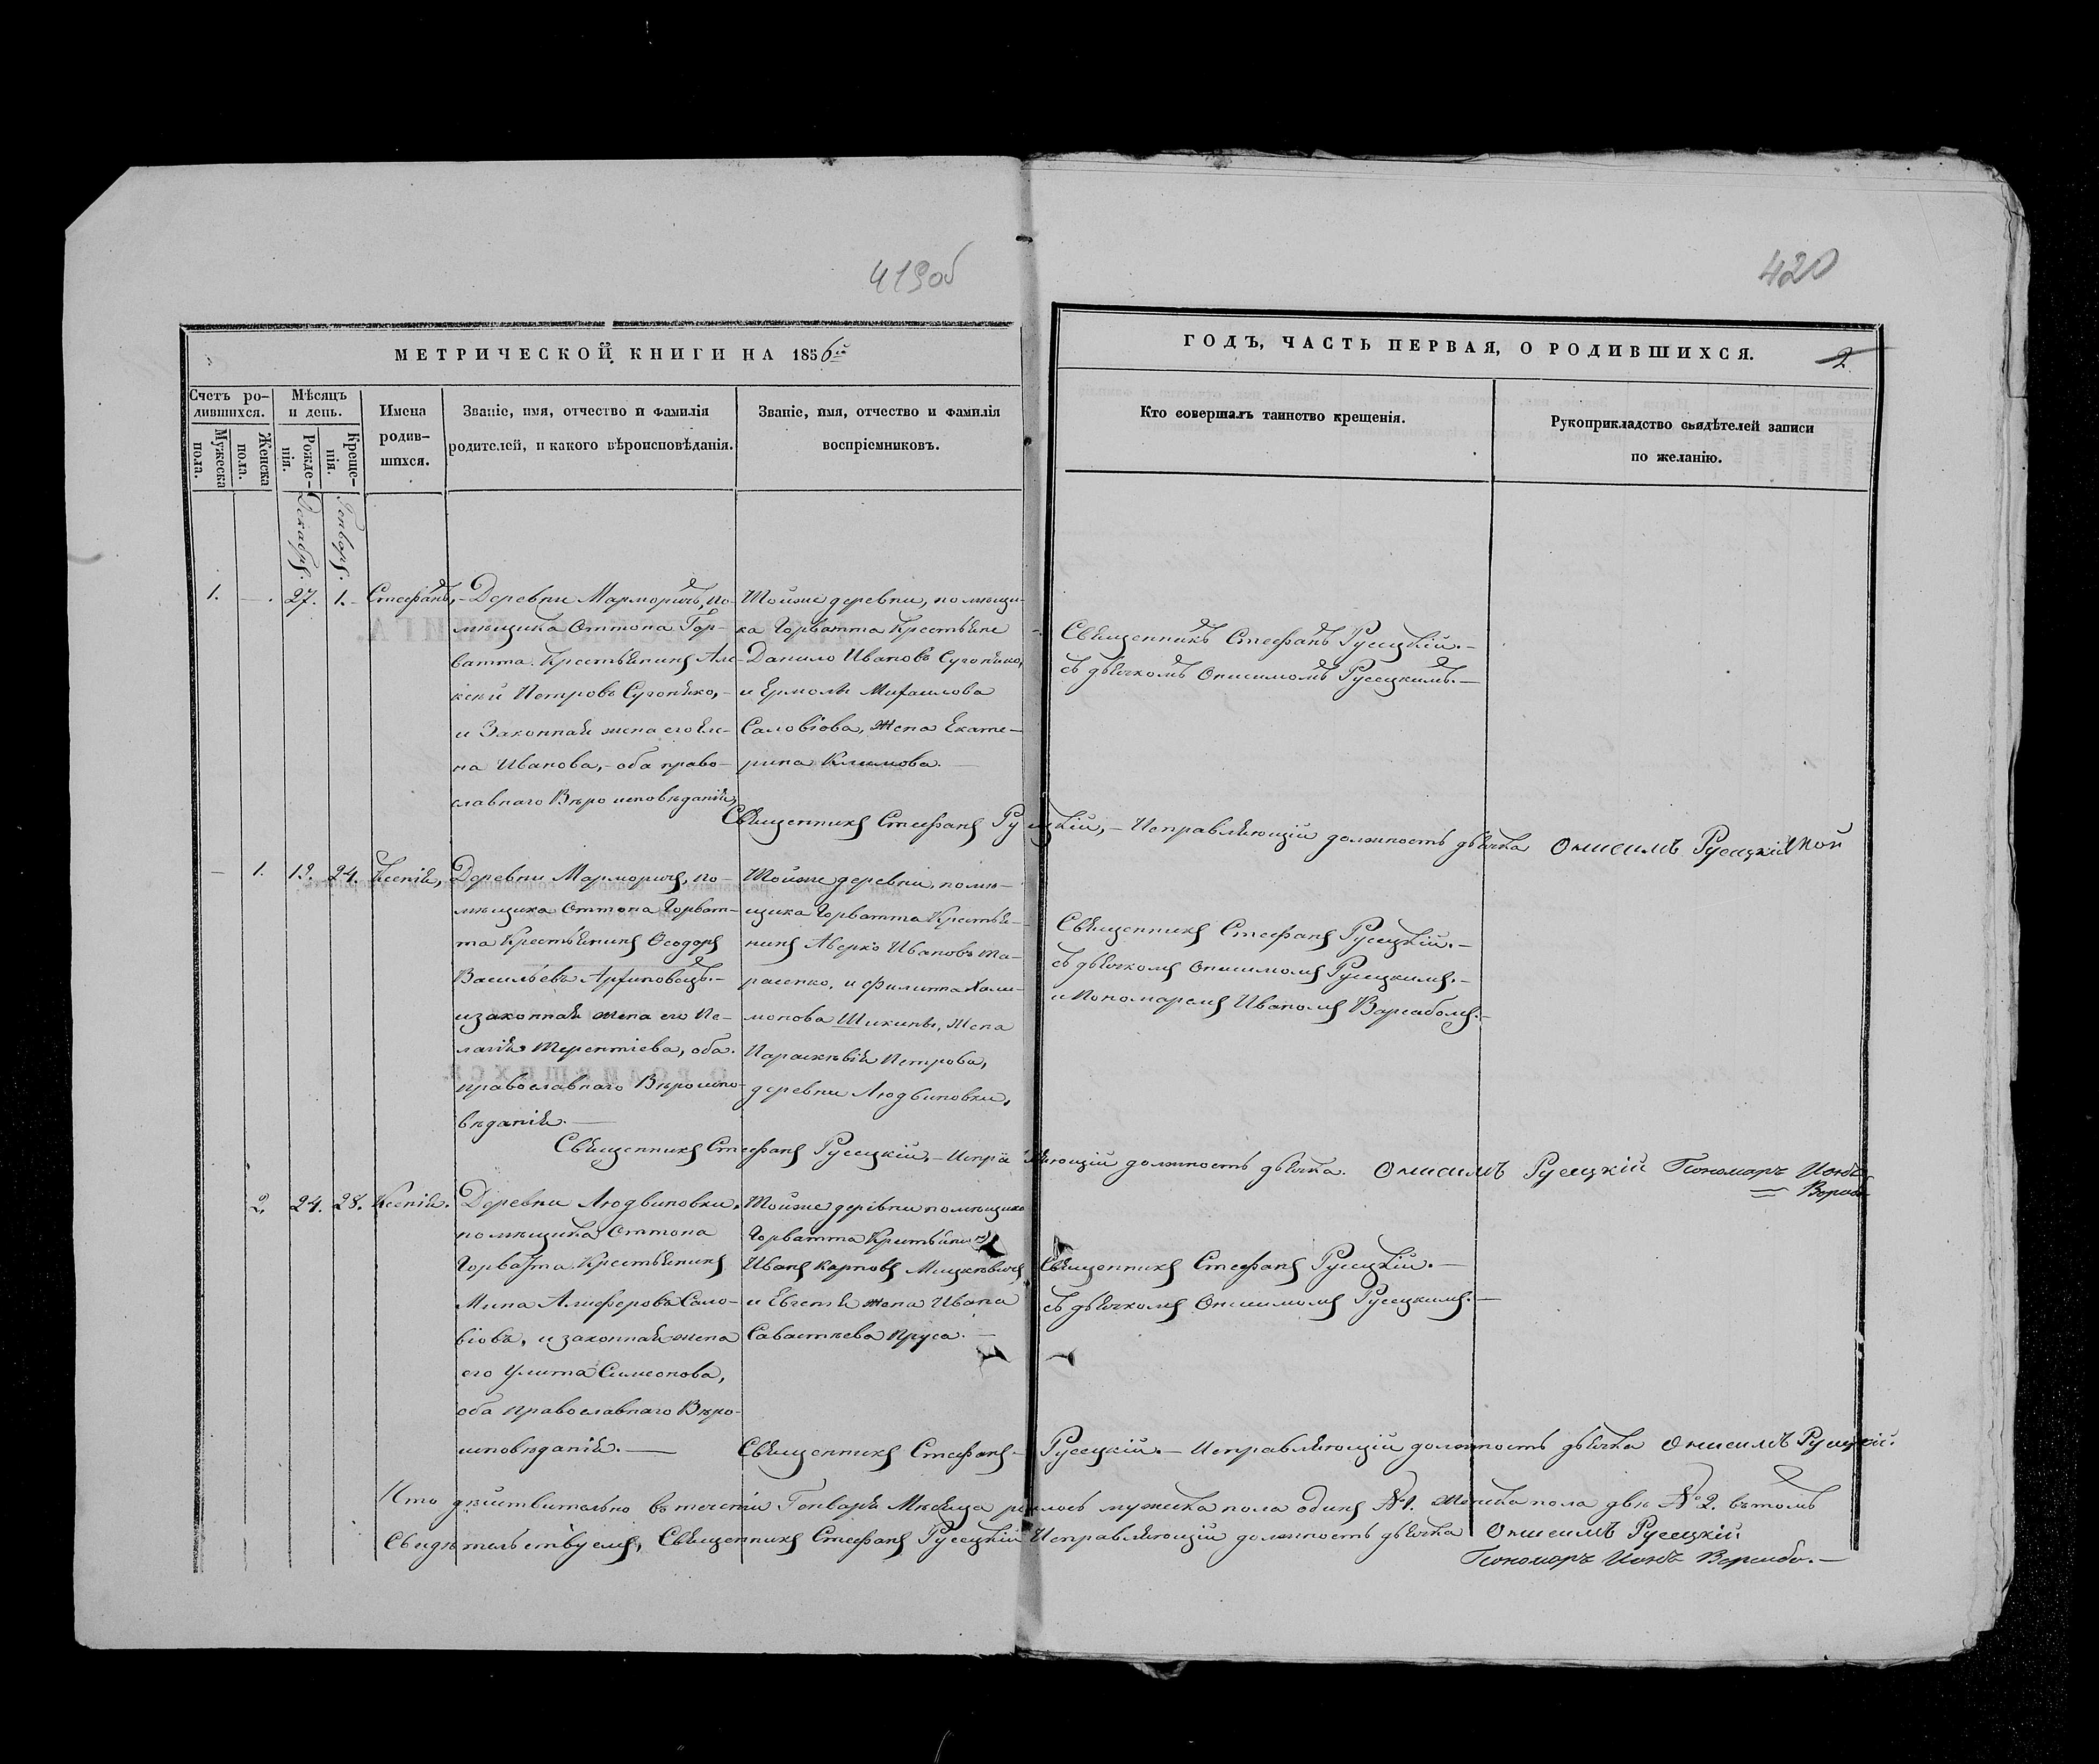 419об
420
МЕТРИЧЕСКОЙ КНИГИ НА 1856й
ГОДЪ, ЧАСТЬ ПЕРВАЯ, О РОДИВШИХСЯ.
2
Счетъ ро-
дившихся.
Мужеска
пола.
Женска
пола.
Мѣсяцъ
и день.
Рожде-
нія.
Креще-
нія.
Имена
родив-
шихся.
Званіе, имя, отчество и фамилія
родителей, и какого вѣроисповѣданія.
Званіе, имя, отчество и фамилія
воспріемниковъ.
Кто совершалъ таинство крещенія.
Рукоприкладство свидѣтелей записи
по желанію.
Декабрь.
Генварь.
1.
27.
1.
Стефанъ,
Деревни Марморичъ, по-
мѣщика Оттона Гор-
ватта Крестьянинъ Але-
ксѣй Петровъ Сугоняко,
и Законная жена его Еле-
на Иванова, оба право-
славнаго Вѣроисповѣданія,
Тойже деревни, помѣщи-
ка Горватта Крестьяне
Данило Ивановъ Сугоняко,
и Ермолы Михаилова
Саловіова, жена Екате-
рина Климова.
Священникъ Стефанъ Русецкій.
съ дьячкомъ Онисимомъ Русецкимъ.
Священникъ Стефанъ Русецкій, Исправляющій должность дьячка Онисимъ Русецкій
1.
19.
24.
Ксенія,
Деревни Марморичъ, по-
мѣщика Оттона Горват-
та Крестьянинъ Ѳеодоръ
Васильевъ Архиповецъ.
и законная жена его Пе-
лагія Терентіева, оба
православнаго Вѣроиспо-
вѣданія.
Тойже деревни, помѣ-
щика Горватта Крестья-
нинъ Аверко Ивановъ Та-
расенко, и Филипа
жена
Параскѣвія Петрова,
деревни Людвиновки,
Священникъ Стефанъ Русецкій.
съ дьячкомъ Онисимомъ Русецкимъ.
и Пономаремъ
Священникъ Стефанъ Русецкій, Исправляющій должность дьячка. Онисимъ Русецкій Пономарь
2.
24.
28.
Ксенія.
Деревни Людвиновки,
помѣщика Оттона
Горватта Крестьянинъ
Мина Алиферовъ Сало-
віовъ, и законная жена
его Улита Симеонова,
оба православнаго Вѣро-
исповѣданія.
Тойже деревни помѣщика
Горватта Крестьянинъ
Иванъ Карповъ Мицкевичъ
и Евгенія жена Ивана
Савастѣева Пруса.
Священникъ Стефанъ Русецкій.
съ дьячкомъ Онисимомъ Русецкимъ.
Священникъ Стефанъ Русецкій. Исправляющій должность дьячка Онисимъ Русецкій.
Что дѣйствительно въ теченіи Генваря Мѣсяца родилось мужеска пола одинъ №1. женска пола двѣ №2. въ томъ
Свидѣтельствуемъ, Священникъ Стефанъ Русецкій Исправляющій должность дьячка Онисимъ Русецкій
Пономарь